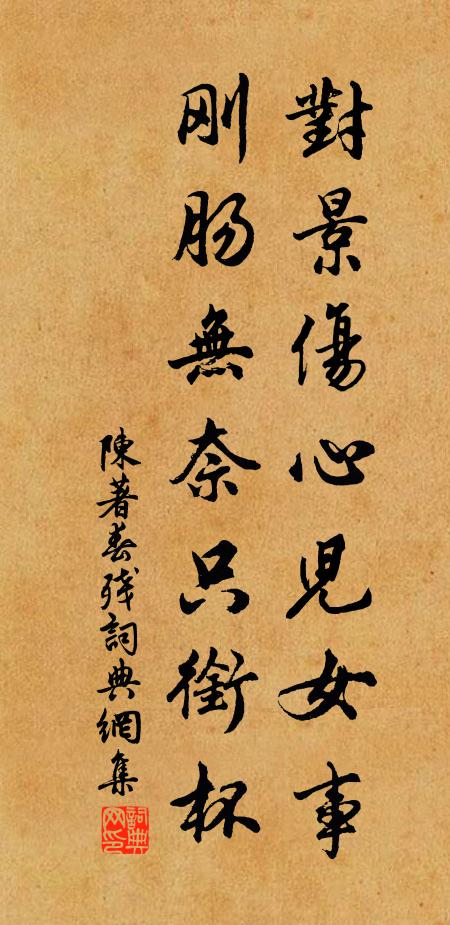 對景傷心兒女事
刚肠無奈只銜杯
陳著春殘詞典網集
詞典网印